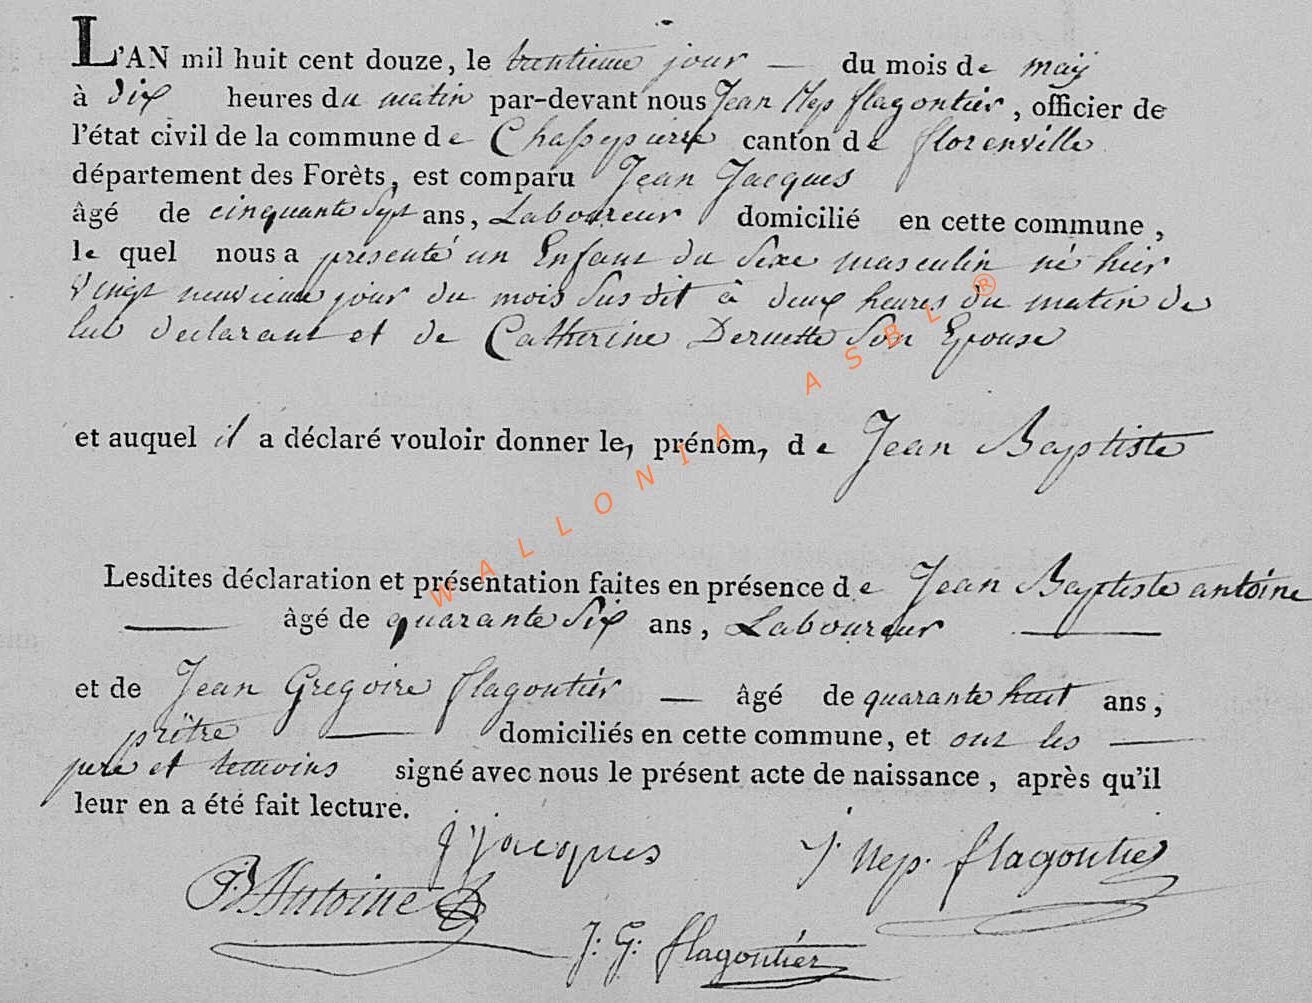 L'AN mil huit cent douze, le trentieme jour — du mois de maÿ
à dix heures du matin par-devant nous Jean Nep flagontier, officier de
l'état civil de la commune de Chassepierre canton de florenville
département des Forèts, est comparu Jean Jacques
âgé de cinquante sept ans, Laboureur domicilié en cette commune,
le quel nous a présenté un Enfant du Sexe masculin né hier
vingt neuvieme jour du mois Susdit à deux heures du matin de
lui declarant et de Catherine Son Epouse
et auquel il a déclaré vouloir donner le, prénom, de Jean Baptiste
Lesdites déclaration et présentation faites en présence de Jean Baptiste antoine
— âgé de quarante Six ans, Laboureur —
et de Jean Gregoire flagontier — âgé de quarante huit ans,
prêtre — domiciliés en cette commune, et ont les —
pere et temoins signé avec nous le présent acte de naissance, après qu'il
leur en a été fait lecture.
J Jacques J. Nep. flagontier
JB Antoine
J: G: flagontier
WALLONIA ASBL ®